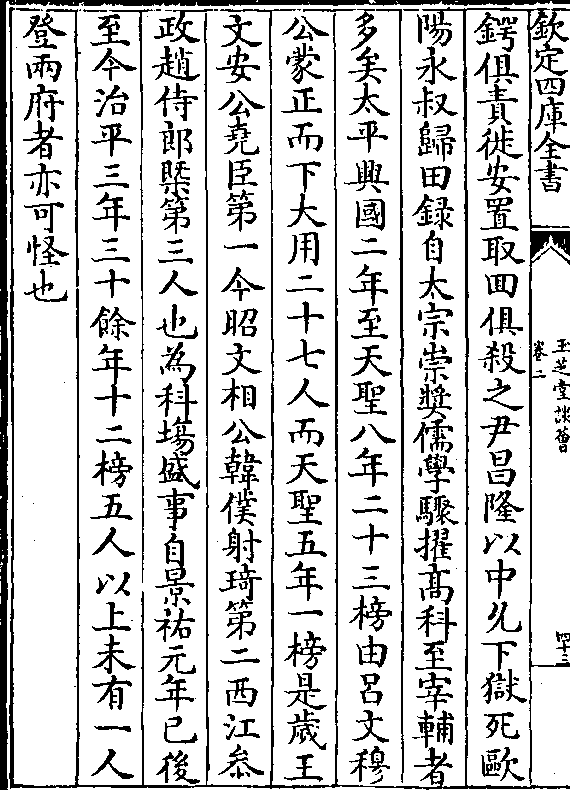 欽定四庫全書
玉芝堂談薈
卷二
四十三
鍔俱責徙安置取回俱殺之尹昌隆以中允下獄死歐
陽永叔歸田録自太宗崇奬儒學驟擢高科至宰輔者
多矣太平興國二年至天聖八年二十三榜由呂文穆
公蒙正而下大用二十七人而天聖五年一榜是歲王
文安公堯臣第一今昭文相公韓僕射琦第二西江叅
政趙侍郎槩第三人也為科塲盛事自景祐元年已後
至今治平三年三十餘年十二榜五人以上未有一人
登兩府者亦可怪也